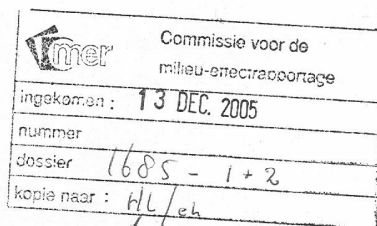 mer
Commissie voor de
milieu-effectrapportage
ingekomen : 13 DEC. 2005
nummer
dossier 1685 - 1 + 2
kopie naar : HL/eh